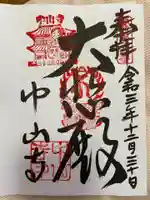 奉拝
令和三年十二月三十日
大悲殿
中山寺